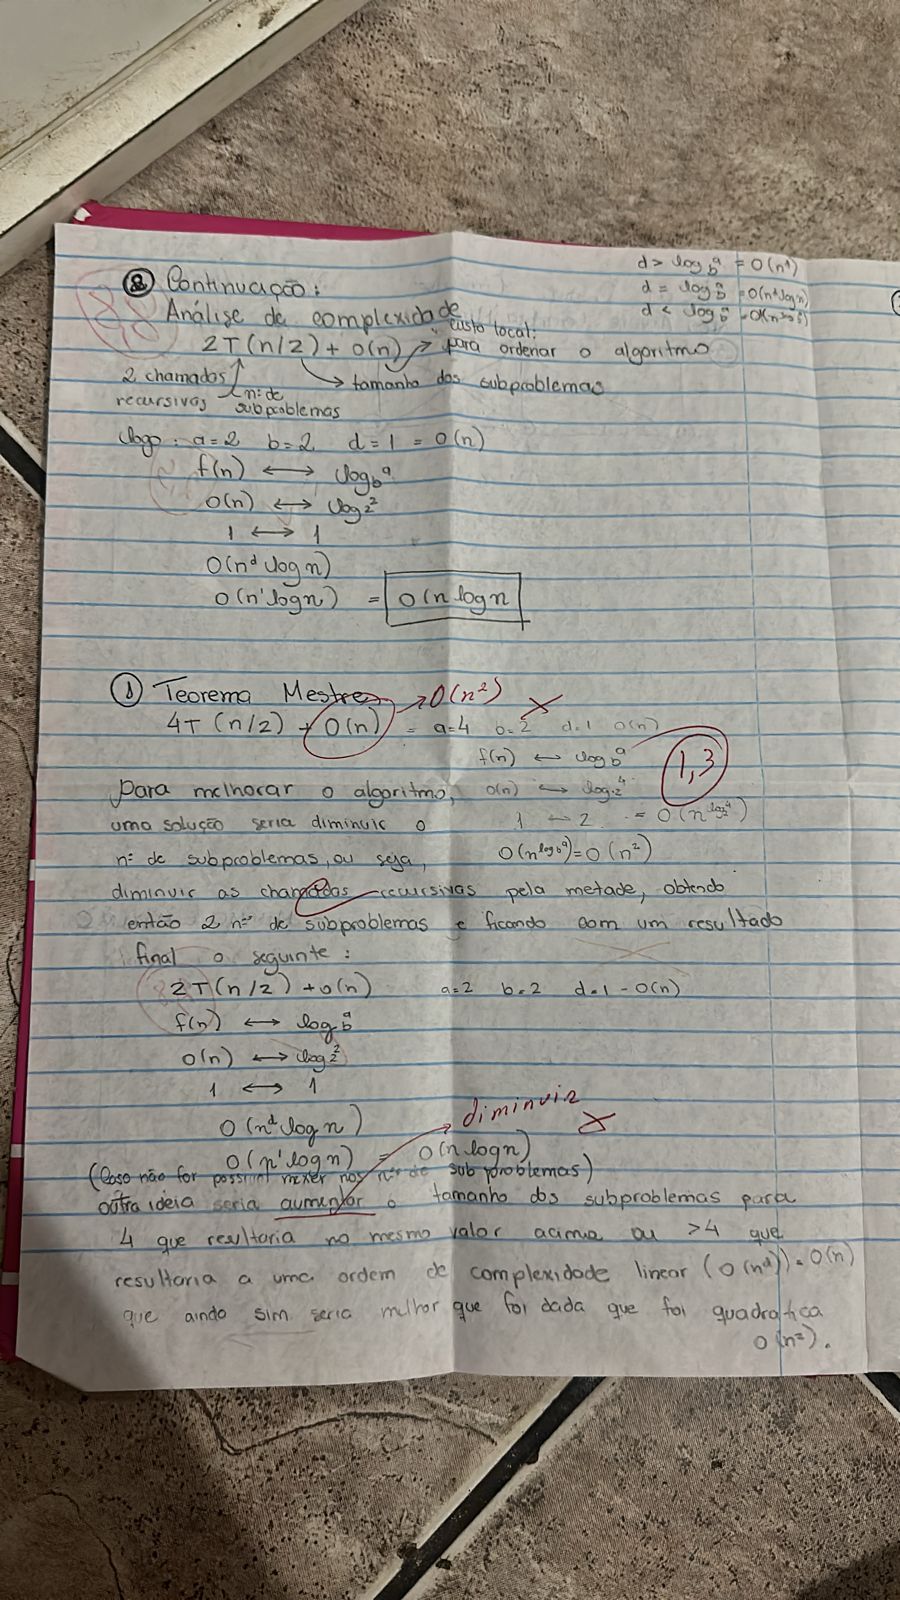 d > log_b^a = O(n^d)
d = log_b^a = O(n^d log n)
d < log_b^a = O(n^log_b^a)
② Continuação:
Análise de complexidade
custo local:
2T(n/2) + O(n) → para ordenar o algoritmo
2 chamados → tamanho dos subproblemas
recursivas nº de subproblemas
logo: a=2 b=2 d=1 = O(n)
f(n) ↔ log_b^a
O(n) ↔ log_2^2
1 ↔ 1
O(n^d log n)
O(n^1 log n) = O(n log n
① Teorema Mestre → O(n²) X
4T(n/2) + O(n) = a=4 b=2 d=1 O(n)
f(n) ↔ log_b^a 1,3
Para melhorar o algoritmo, O(n) ↔ log_2^4
uma solução seria diminuir o 1 ↔ 2 = O(n^log_2^4)
nº de subproblemas, ou seja, O(n^log_b^a) = O(n²)
diminuir as chamadas recursivas pela metade, obtendo
então 2 nº de subproblemas e ficando com um resultado
final o seguinte:
2T(n/2) + O(n) a=2 b=2 d=1 - O(n)
f(n) ↔ log_b^a
O(n) ↔ log_2^2
1 ↔ 1
O(n^d log n) diminuir X
O(n^1 log n) = O(n log n)
(Caso não for possível mexer nos nº de sub problemas)
outra ideia seria aumentar o tamanho dos subproblemas para
4 que resultaria no mesmo valor acima ou >4 que
resultaria a uma ordem de complexidade linear (O(n^d)) = O(n)
que ainda sim seria melhor que foi dada que foi quadratica
O(n²).